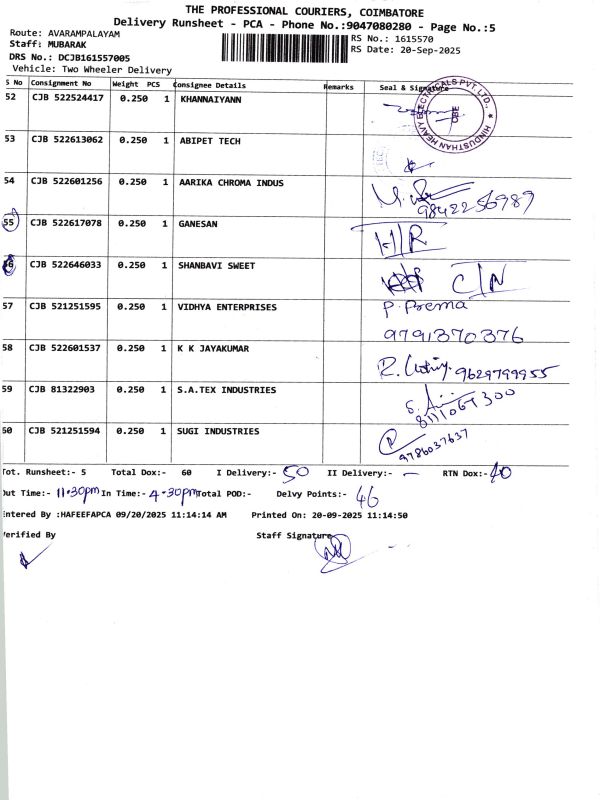 THE PROFESSIONAL COURIERS, COIMBATORE
Delivery Runsheet - PCA - Phone No.:9047080280 - Page No.:5
Route: AVARAMPALAYAM
RS No.: 1615570
Staff: MUBARAK
RS Date: 20-Sep-2025
DRS No.: DCJB161557005
Vehicle: Two Wheeler Delivery
S No Consignment No Weight PCS Consignee Details Remarks Seal & Signature
52 CJB 522524417 0.250 1 KHANNAIYANN
HINDUSTHAN HEAVY ELECTRICALS PVT. LTD., CBE
53 CJB 522613062 0.250 1 ABIPET TECH
54 CJB 522601256 0.250 1 AARIKA CHROMA INDUS
9842256989
55 CJB 522617078 0.250 1 GANESAN H/R
56 CJB 522646033 0.250 1 SHANBAVI SWEET C/N
57 CJB 521251595 0.250 1 VIDHYA ENTERPRISES P. Prema
9791370376
58 CJB 522601537 0.250 1 K K JAYAKUMAR
9629799955
59 CJB 81322903 0.250 1 S.A.TEX INDUSTRIES
8111067300
60 CJB 521251594 0.250 1 SUGI INDUSTRIES
9786037637
Tot. Runsheet:- 5 Total Dox:- 60 I Delivery:- 50 II Delivery:- - RTN Dox:- 10
Out Time:- 11.30pm In Time:- 4.30pm Total POD:- Delvy Points:- 46
Entered By :HAFEEFAPCA 09/20/2025 11:14:14 AM Printed On: 20-09-2025 11:14:50
Verified By Staff Signature